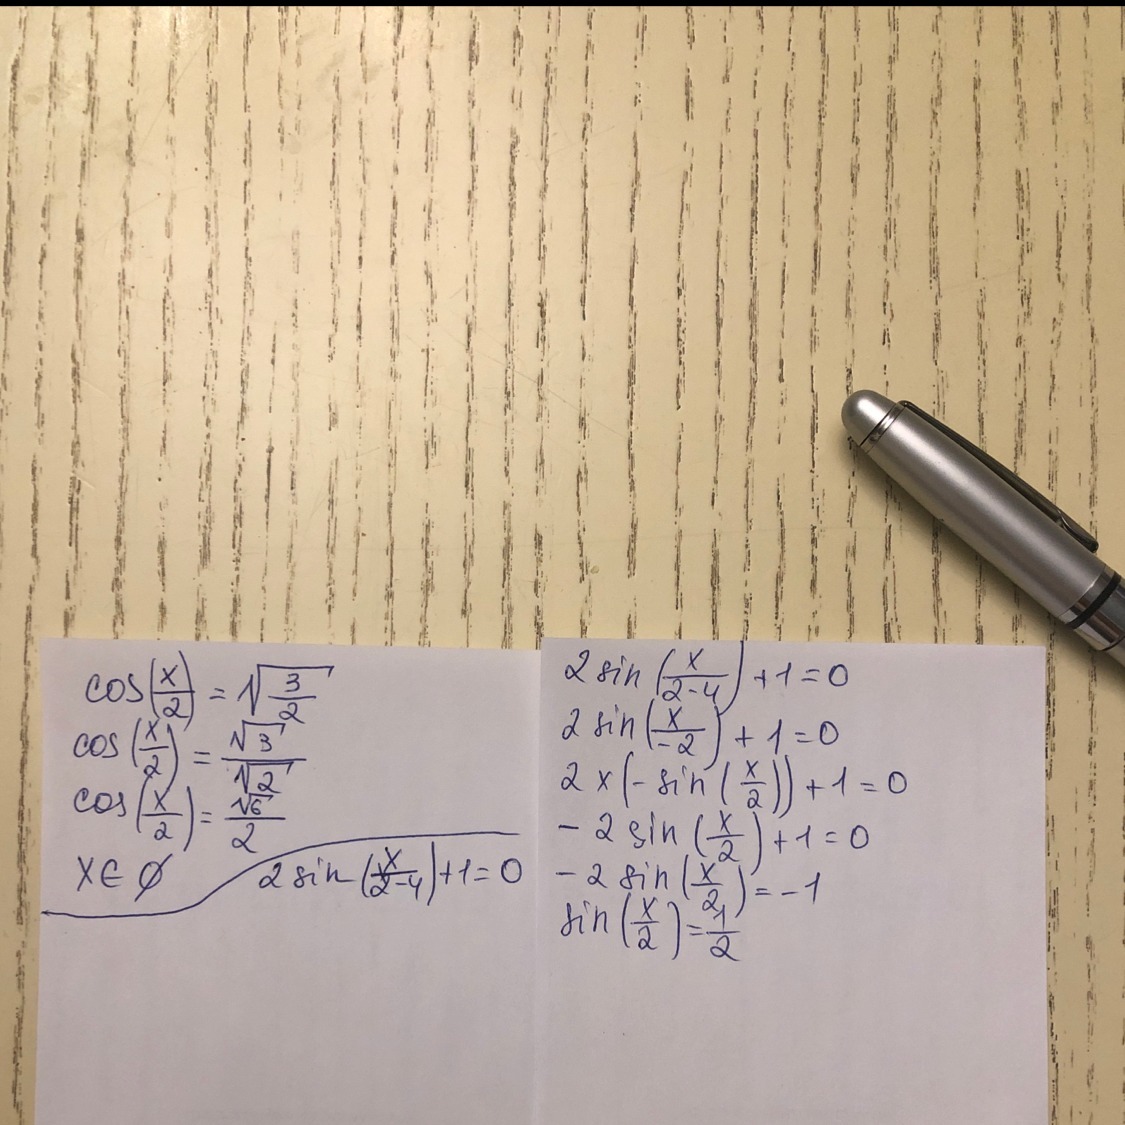 cos(x/2) = √(3/2)
cos(x/2) = √3/√2
cos(x/2) = √6/2
x ∈ ∅
2 sin(x/2-4)+1=0
2 sin(x/2-4)+1=0
2 sin(x/-2)+1=0
2 x (- sin(x/2))+1=0
- 2 sin(x/2)+1=0
- 2 sin(x/2)=-1
sin(x/2)=1/2